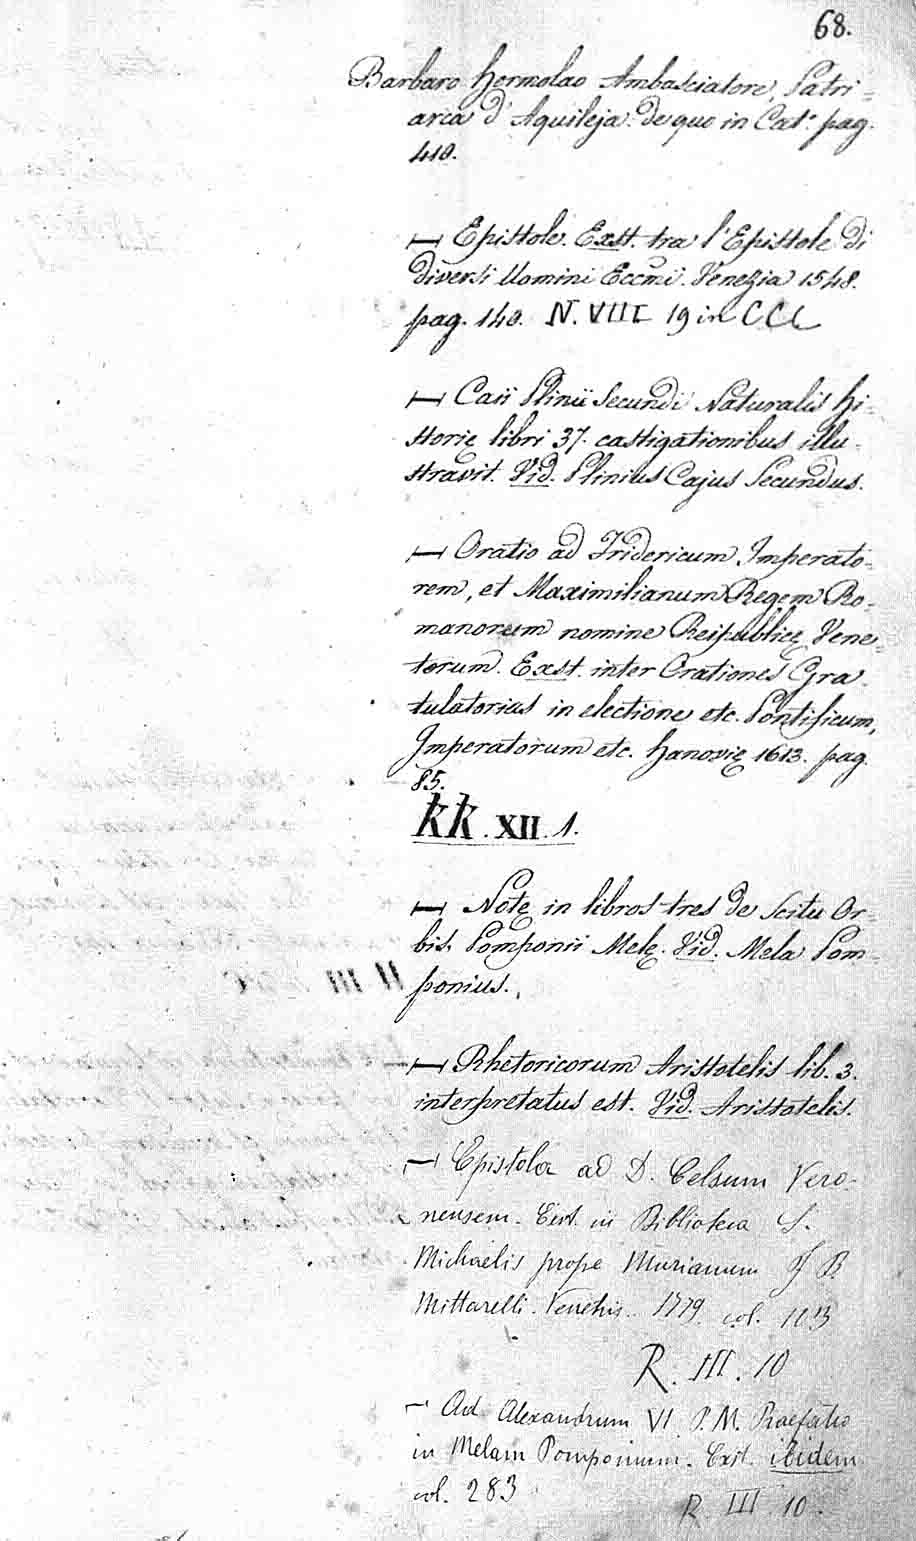 68.
Barbaro Hermolao Ambasciatore, Patri=
arca d'Aquileja: de quo in Cat.° pag.
410.
— Epistole. Exst. tra l'Epistole di
diversi Uomini Eccmi. Venezia 1548.
pag. 140. N. VIII 19 in CCC
— Caii Plinii Secundi Naturalis Hi-
storię libri 37. castigationibus illu-
stravit. Vid. Plinius Cajus Secundus.
— Oratio ad Fridericum Imperato-
rem, et Maximilianum Regem Ro-
manorum nomine Reipublicę Vene=
torum. Exst. inter Orationes Gra-
tulatorias in electione etc. Pontificum,
Imperatorum etc. Hanovię 1613. pag.
85.
KK. XII. 1.
— Notę in libros tres de Scitu Or-
bis Pomponii Melę. Vid. Mela Pom-
ponius.
— Rhetoricorum Aristotelis lib. 3.
interpretatus est. Vid. Aristotelis.
— Epistola ad D. Celsum Vero-
nensem. Exst. in Biblioteca S.
Michaelis prope Murianum J B
Mittarelli. Venetiis. 1779. col. 1113
R. III. 10
— Ad Alexandrum VI. P. M. Praefatio
in Melam Pomponium. Exst. ibidem
col. 283
R. III. 10.